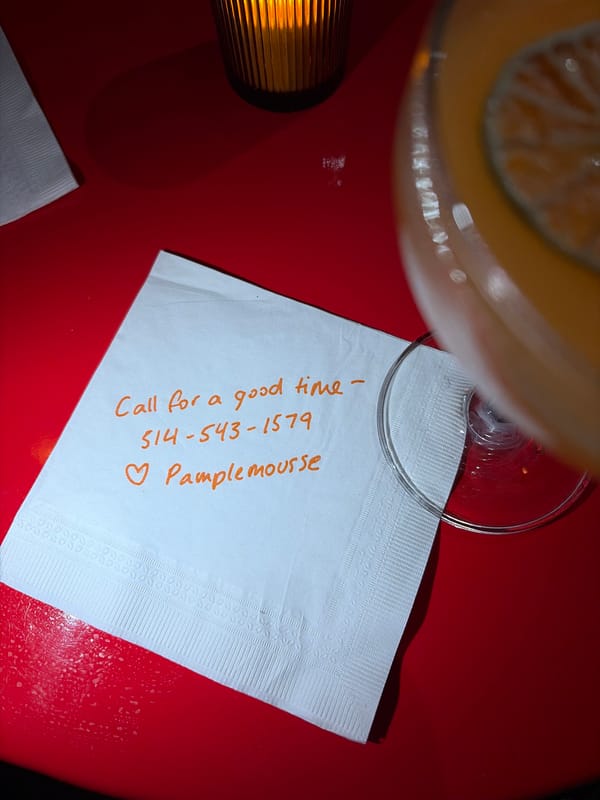 Call for a good time -
514-543-1579
♡ Pamplemousse